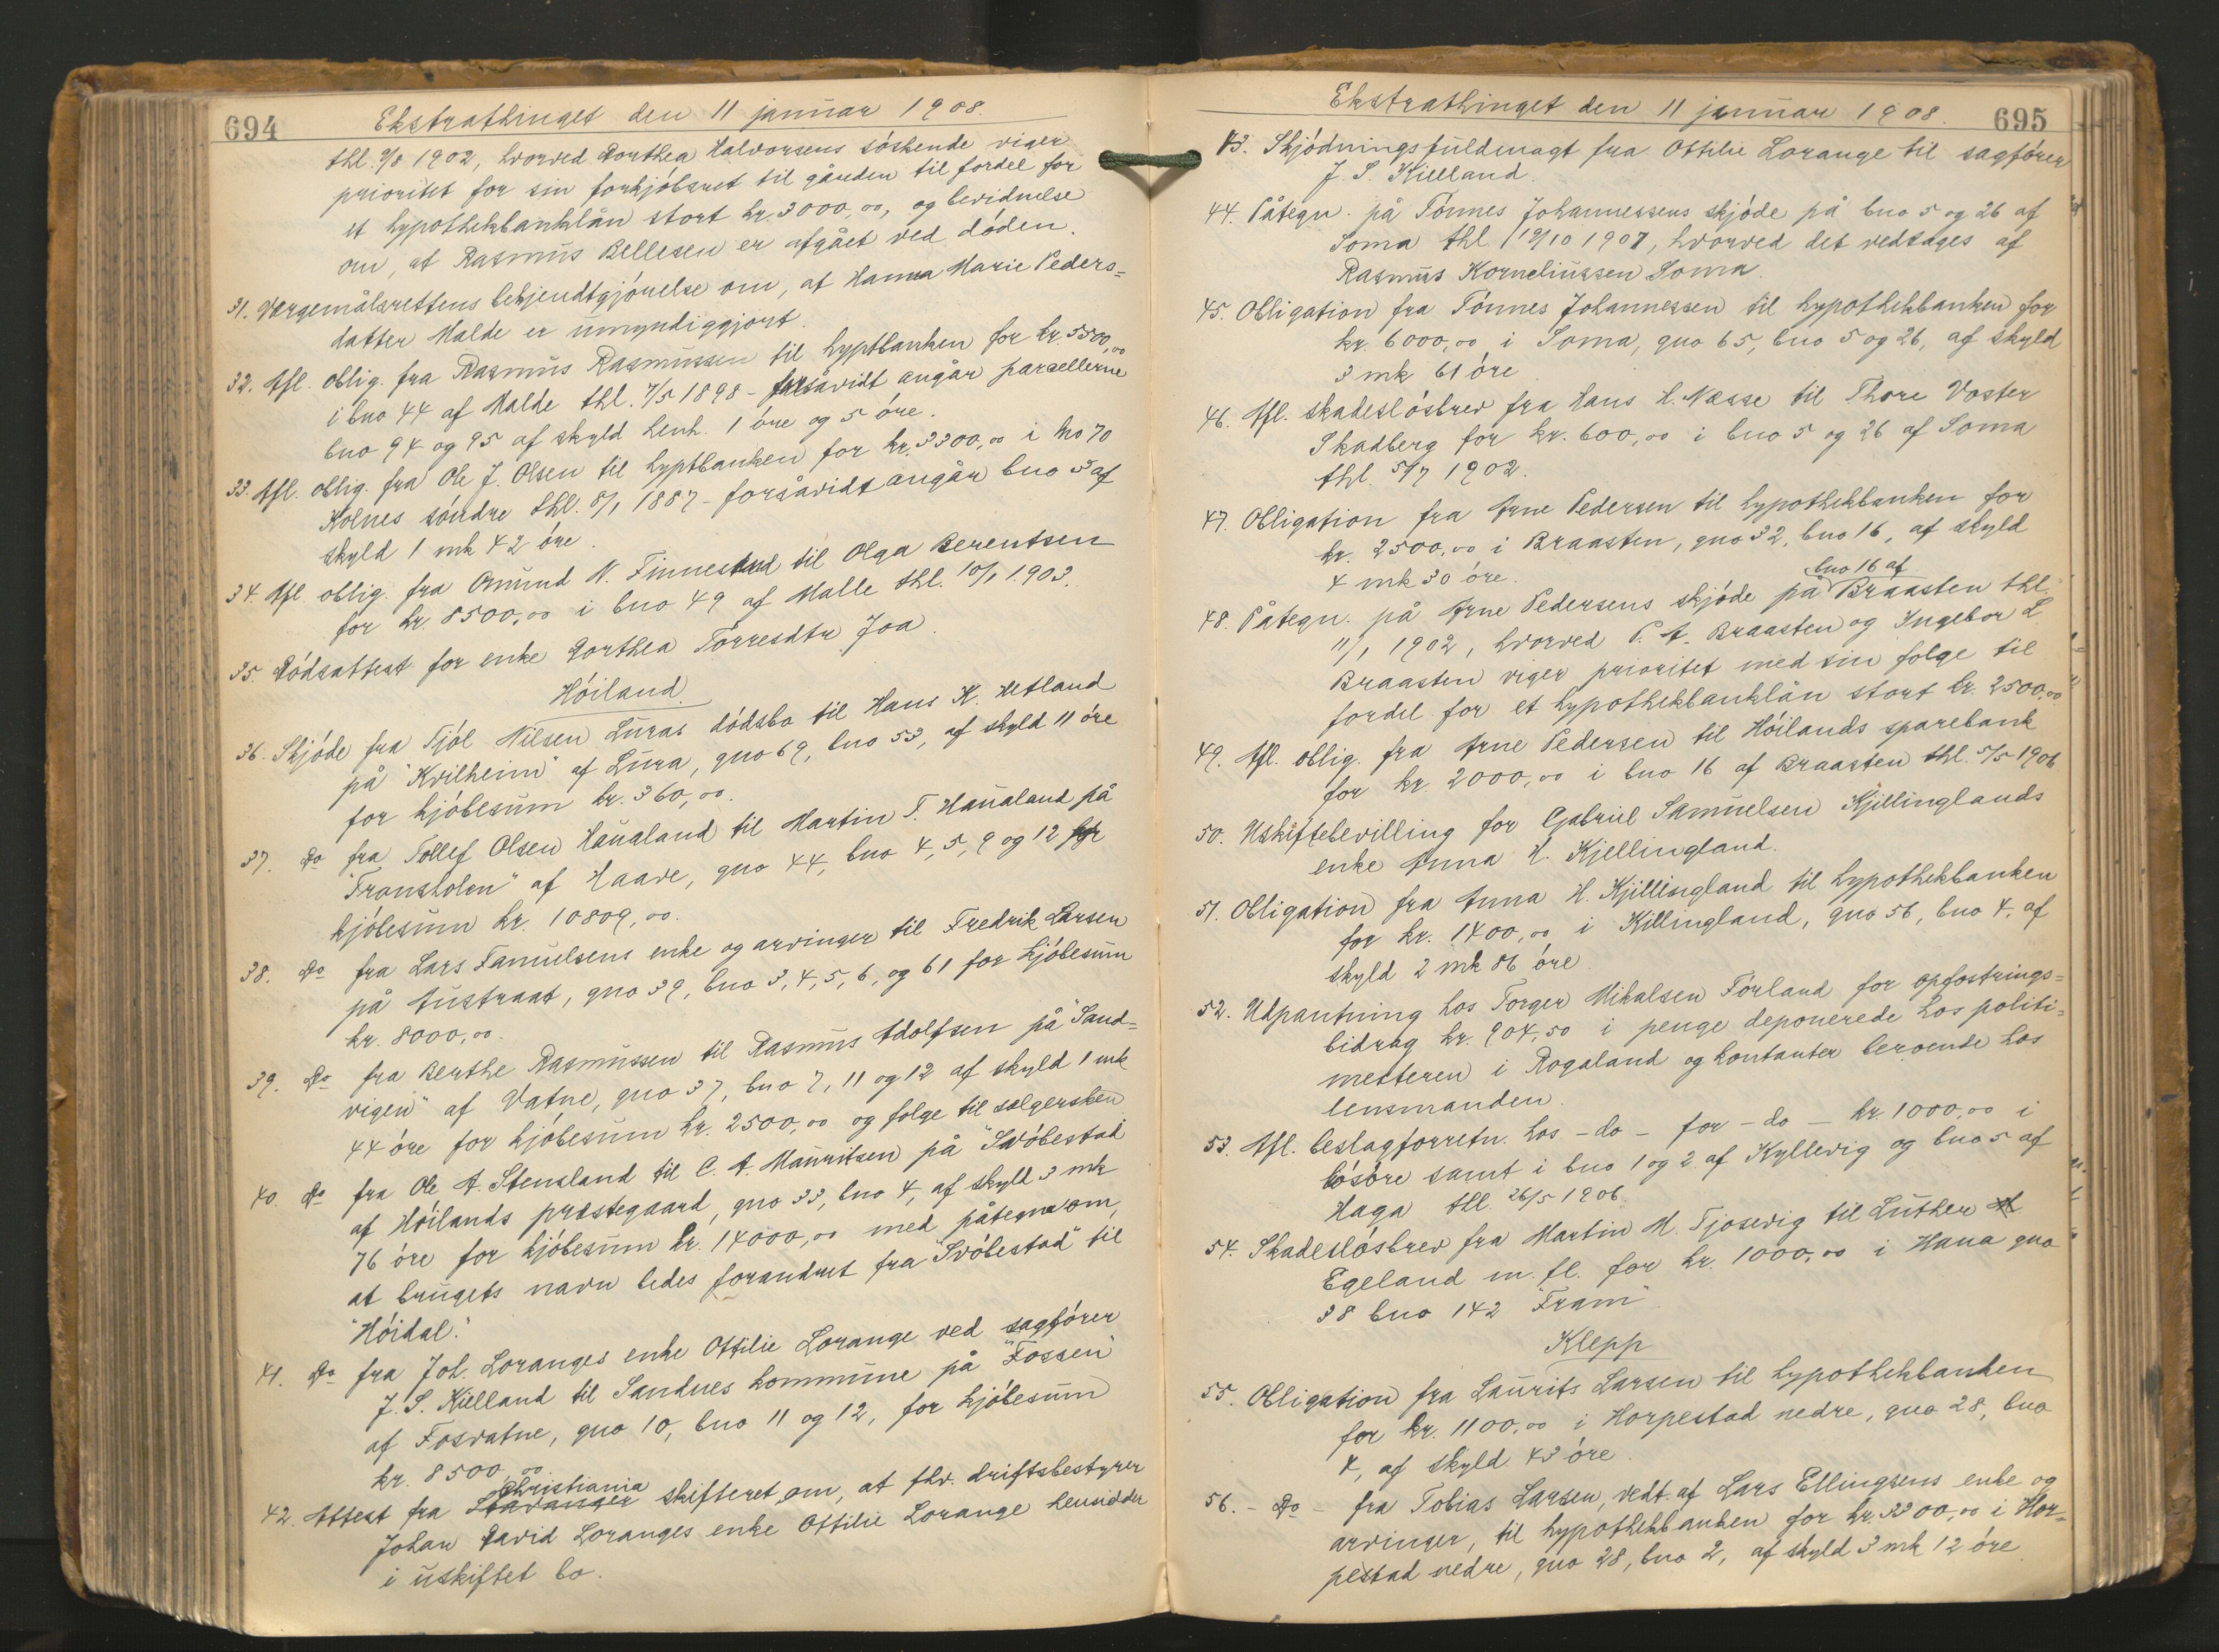 694
Ekstrathinget den 11 januar 1908.
thl. 9/8 1902, hvorved Dorthea Halvorsens söskende viger
prioritet for sin forkjöbsret til gården til fordel for
et hypothekbanklån stort kr. 3000,00, og bevidnelse
om, at Rasmus Bellesen er afgået ved döden.
31. Værgemålsrettens bekjendtgjörelse om, at Hanna Marie Peders=
datter Malde er umyndiggjort.
32. Afl. oblig. fra Rasmus Rasmussen til hyptbanken for kr. 5500,00
i bno 44 af Malde thl. 7/5 1898 - forsåvidt angår parcellerne
bno 94 og 95 af skyld henh. 1 öre og 5 öre.
33. Afl. oblig. fra Ole J. Olsen til hyptbanken for kr. 3300,00 i No 70
Kolnes söndre thl. 8/1 1887 - forsåvidt angår bno 5 af
skyld 1 mk 42 öre.
34. Afl. oblig. fra Omund N. Finnestad til Olga Berentsen
for kr. 8500,00 i bno 49 af Malle thl. 10/1 1903.
35. Dödsattest for enke Dorthea Torresdtr Joa.
Höiland.
36. Skjöde fra Tjöl Nilsen Luras dödsbo til Hans K. Hetland
på "Kvilheim" af Lura, gno 69, bno 53, af skyld 11 öre
for kjöbesum kr. 360,00.
37. Do fra Tollef Olsen Haualand til Martin T. Haualand på
"Fransholm" af Haave, gno 44, bno 4, 5, 9 og 12 for
kjöbesum kr. 10809,00.
38. Do fra Lars Samuelsens enke og arvinger til Fredrik Larsen
på Austraat, gno 39, bno 3, 4, 5, 6, og 61 for kjöbesum
kr. 8000,00.
39. Do fra Berthe Rasmussen til Rasmus Adolfsen på "Sand=
vigen" af Vatne, gno 37, bno 7, 11 og 12 af skyld 1 mk
44 öre for kjöbesum kr. 2500,00 og folge til sælgersken
40. Do fra Ole A. Stensland til C. A. Mauritsen på "Svöbestad"
af Höilands præstegaard, gno 33, bno 4, af skyld 3 mk
76 öre for kjöbesum kr. 14000,00 med påtegn. om,
at brugets navn bedes forandret fra "Svöbestad" til
"Höidal."
41. Do fra Joh. Loranges enke Ottilie Lorange ved sagförer
J. S. Kielland til Sandnes kommune på "Fossen"
af Fosvatne, gno 10, bno 11 og 12, for kjöbesum
kr. 8500,00
Christiania
42. Attest fra Stavanger skifteret om, at fhv. driftsbestyrer
Johan David Loranges enke Ottilie Lorange hensidder
i uskiftet bo.
Ekstrathinget den 11 januar 1908.
695
43. Skjödningsfuldmagt fra Ottilie Lorange til sagförer
J. S. Kielland.
44. Påtegn. på Tönnes Johannessens skjöde på bno 5 og 26 af
Soma thl 12/10 1907, hvorved det vedtages af
Rasmus Korneliussen Soma.
45. Obligation fra Tönnes Johannessen til hypothekbanken for
kr. 6000,00 i Soma, gno 65, bno 5 og 26, af skyld
3 mk 61 öre
46. Afl. skadeslösbrev fra Hans H. Næsse til Thore Voster
Skadberg for kr. 600,00 i bno 5 og 26 af Soma
thl. 5/7 1902.
47. Obligation fra Arne Pedersen til hypothekbanken for
kr. 2500,00 i Braasten, gno 32, bno 16, af skyld
4 mk 30 öre.
bno 16 af
48. Påtegn. på Arne Pedersens skjöde på Braasten thl.
11/1 1902, hvorved P. A. Braasten og Ingebor L
Braasten viger prioritet med sin folge til
fordel for et hypothekbanklån stort kr. 2500,00
49. Afl. oblig. fra Arne Pedersen til Höilands sparebank
for kr. 2000,00 i bno 16 af Braasten thl. 5/5 1906
50. Uskiftebevilling for Gabriel Samuelsen Kjillinglands
enke Anna H. Kjellingland.
51. Obligation fra Anna H. Kjillingland til hypothekbanken
for kr. 1400,00 i Killingland, gno 56, bno 4, af
skyld 2 mk 86 öre
52. Udpantning hos Torger Mikalsen Förland for opfostrings=
bidrag kr. 904,50 i penge deponerede hos politi=
mesteren i Rogaland og kontanter beroende hos
lensmanden.
53. Afl. beslagforretn. hos - do - for - do - kr 1000,00 i
lösöre samt i bno 1 og 2 af Kyllevig og bno 5 af
Haga thl. 26/5 1906.
54. Skadeslösbrev fra Martin M. Tjosevig til Luther
Egeland m. fl. for kr. 1000,00 i Hana gno
38 bno 142 "Fram"
Klepp
55. Obligation fra Laurits Larsen til hypothekbanken
for kr. 1100,00 i Horpestad nedre, gno 28, bno
4, af skyld 43 öre.
56. - Do - fra Tobias Larsen, vedt. af Lars Ellingsens enke og
arvinger, til hypothekbanken for kr. 3200,00 i Hor=
pestad nedre, gno 28, bno 2, af skyld 3 mk 12 öre